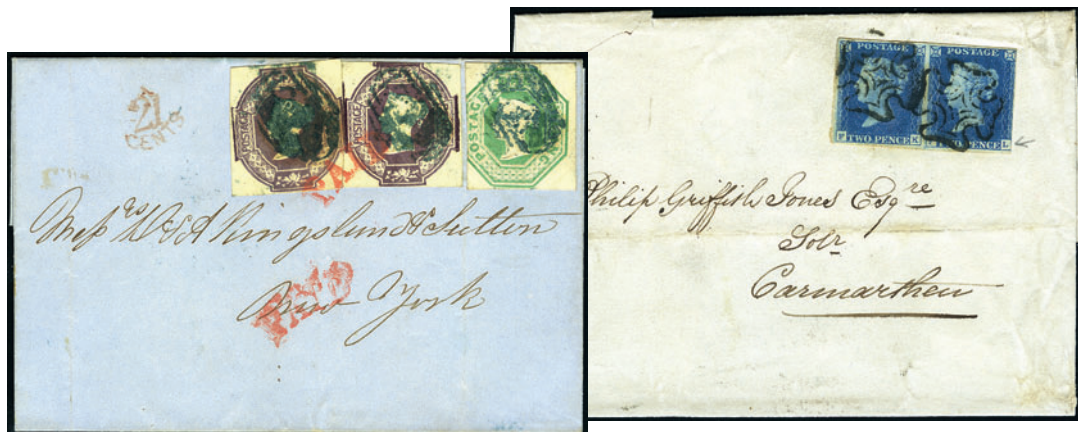 21
CENTS
POSTAGE
POSTAGE
POSTAGE
PAI
Mess^rs D & A Kingsland & Sutton
New York
PAID
POSTAGE
POSTAGE
F
TWO PENCE
K
PENCE
L
Philip Griffith Jones Esq^re
Sol^r
Carmarthen